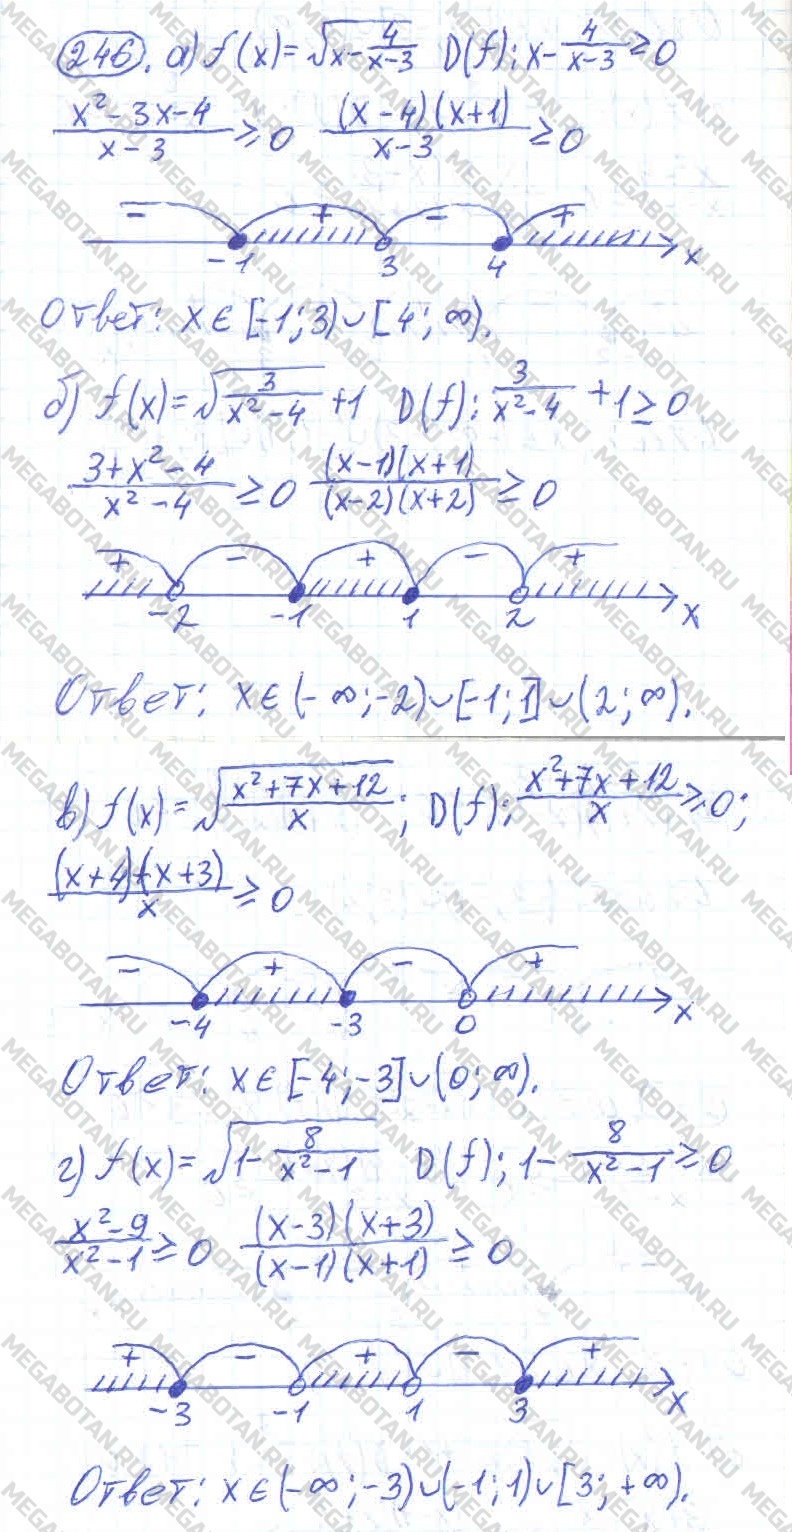 246. а) f(x)=√(x-4/(x-3)) D(f): x-4/(x-3)≥0
(x²-3x-4)/(x-3)≥0 ((x-4)(x+1))/(x-3)≥0
- + - +
-1 3 4 x
Ответ: x∈[-1;3)∪[4;∞).
б) f(x)=√(3/(x²-4))+1 D(f): 3/(x²-4)+1≥0
(3+x²-4)/(x²-4)≥0 ((x-1)(x+1))/((x-2)(x+2))≥0
+ - + - +
-2 -1 1 2 x
Ответ: x∈(-∞;-2)∪[-1;1]∪(2;∞).
в) f(x)=√((x²+7x+12)/x); D(f): (x²+7x+12)/x≥0;
((x+4)(x+3))/x≥0
- + - +
-4 -3 0 x
Ответ: x∈[-4;-3]∪(0;∞).
г) f(x)=√(1-8/(x²-1)) D(f): 1-8/(x²-1)≥0
(x²-9)/(x²-1)≥0 ((x-3)(x+3))/((x-1)(x+1))≥0
+ - + - +
-3 -1 1 3 x
Ответ: x∈(-∞;-3)∪(-1;1)∪[3;+∞).
MEGABOTAN.RU